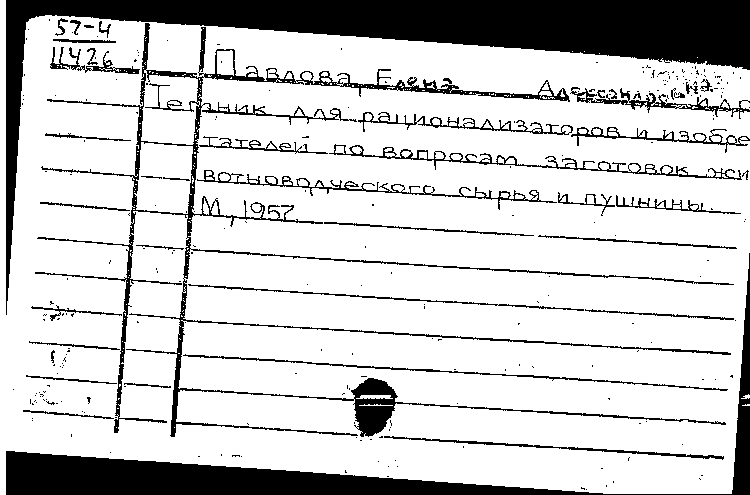 57-4
11426
Павлова, Елена Александровна и др
Темник для рационализаторов и изобре
тателей по вопросам заготовок жи
вотноводческого сырья и пушнины.
М, 1957